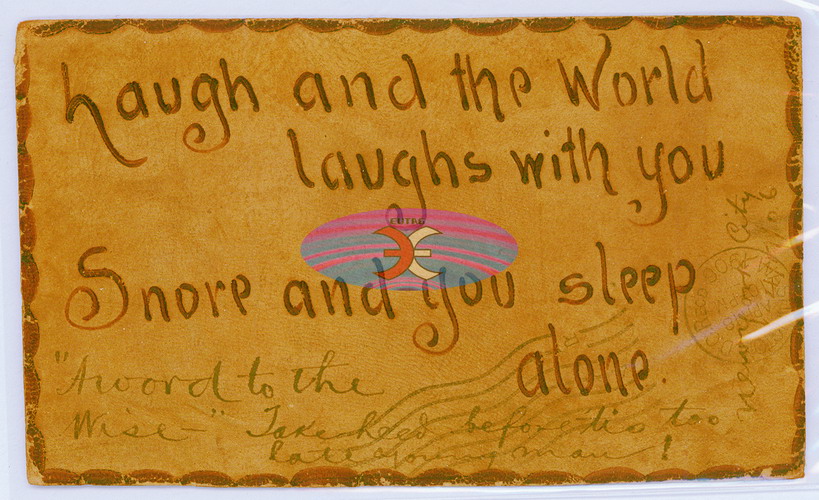 Laugh and the World
laughs with you
EUTAG
Snore and you sleep
alone.
"A word to the
Wise—" Take heed before tis too
late young man!
New York City